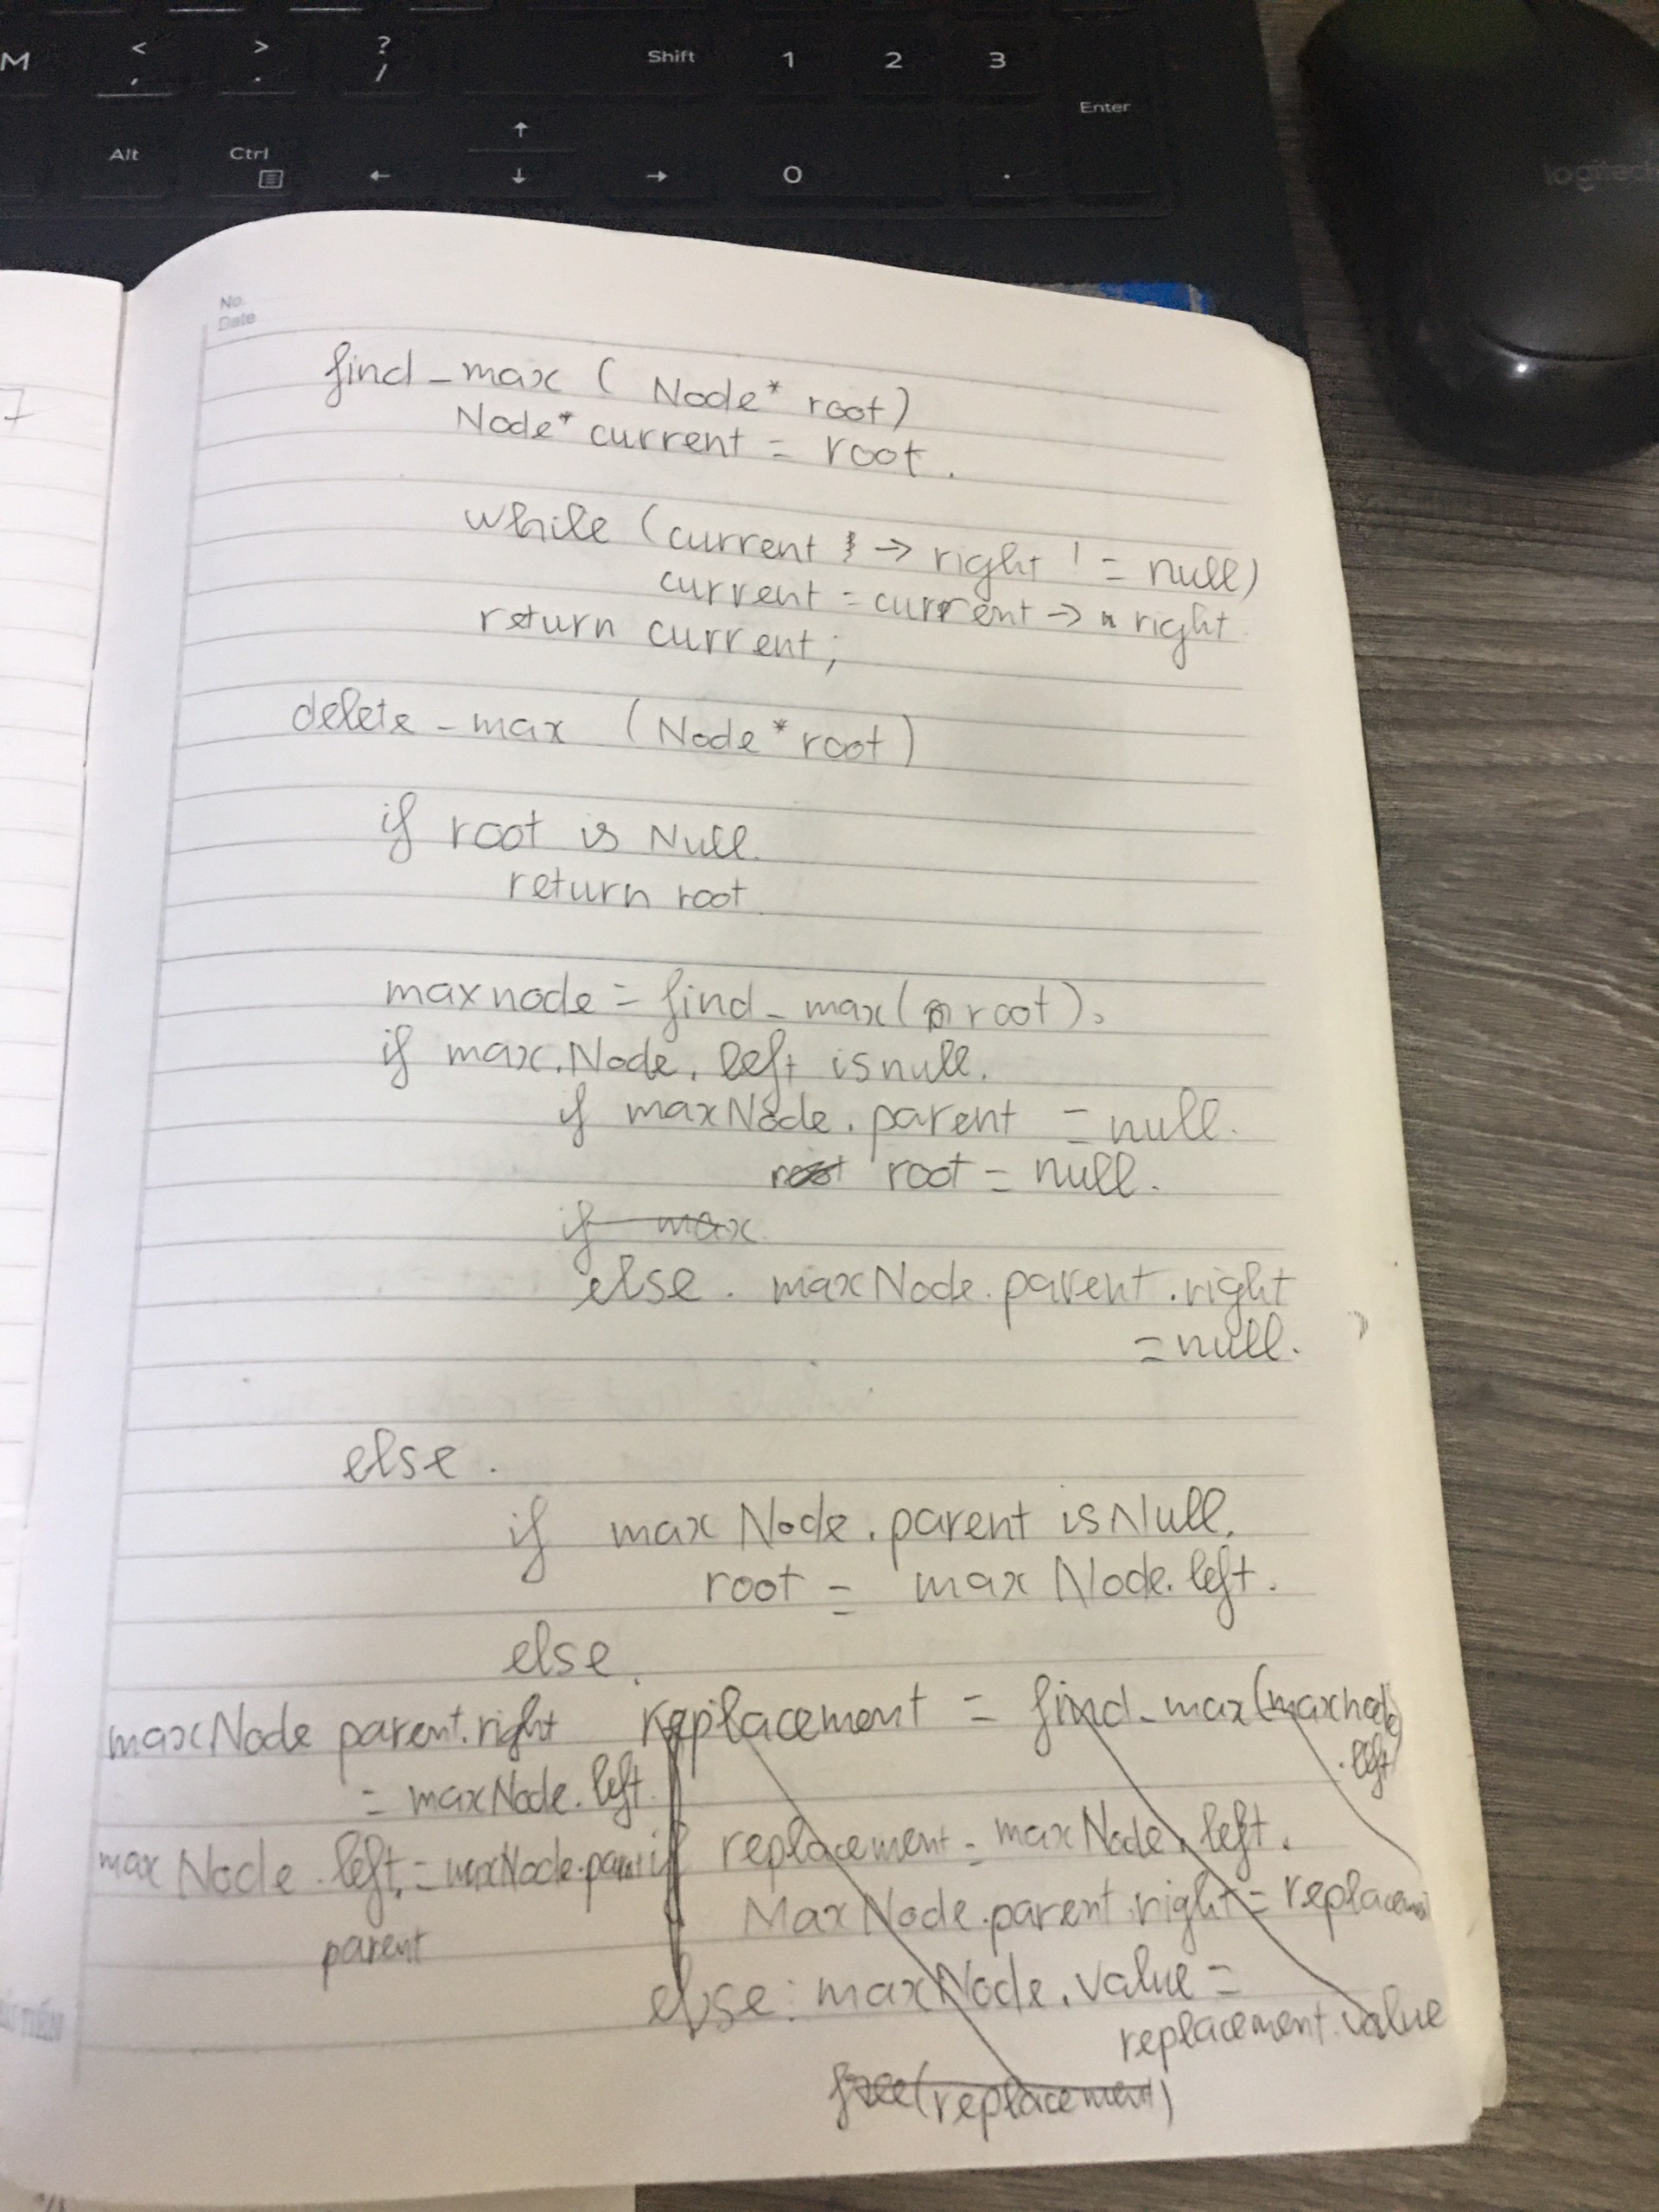 M < , > . ? / Shift 1 2 3
Enter
Alt Ctrl 0 .
logitech
No.
Date
7
find_max ( Node* root)
Node* current = root.
while (current -> right != null)
current = current -> right
return current;
delete_max (Node* root)
if root is Null.
return root
maxnode = find_max( root).
if max.Node.left is null.
if maxNode.parent = null.
root root = null.
if max
else. maxNode.parent.right
= null.
else.
if maxNode.parent is Null.
root = maxNode.left.
else.
maxNode parent.right
= maxNode.left.
maxNode.left. = maxNode.parent
parent
replacement = find_max(maxnode
.left)
if replacement = maxNode.left.
MaxNode.parent.right =
else: maxNode.value =
replacement.value
free(replacement)